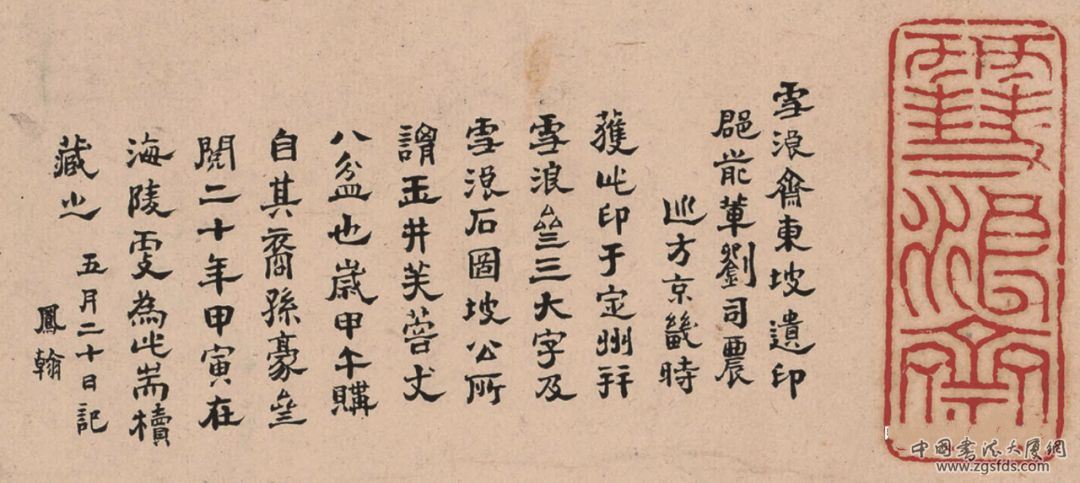 雪浪齋
雪浪齋東坡遺印
前輩劉司農
巡方京畿時
獲此印于定州并
雪浪亝三大字及
雪浪石圖坡公所
謂玉井芙蓉丈
八盆也歲甲午購
自其裔孫豪亝
閱二十年甲寅在
海陵為此耑櫝
藏之 五月二十日記
鳳翰
中国书法大厦網
www.zgsfds.com